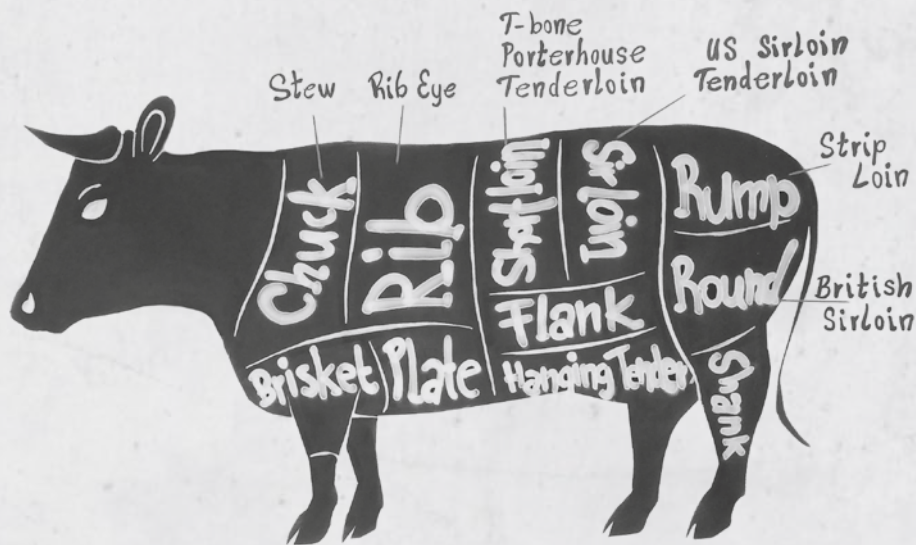 T-bone
Porterhouse
Tenderloin
US Sirloin
Tenderloin
Stew
Rib Eye
Strip
Loin
British
Sirloin
Chuck
Rib
Short Loin
Sirloin
Rump
Round
Flank
Brisket
Plate
Hanging Tender
Shank